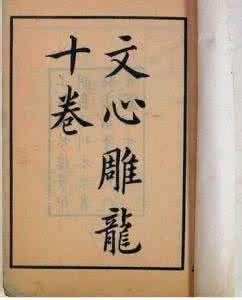 文心雕龍
十卷